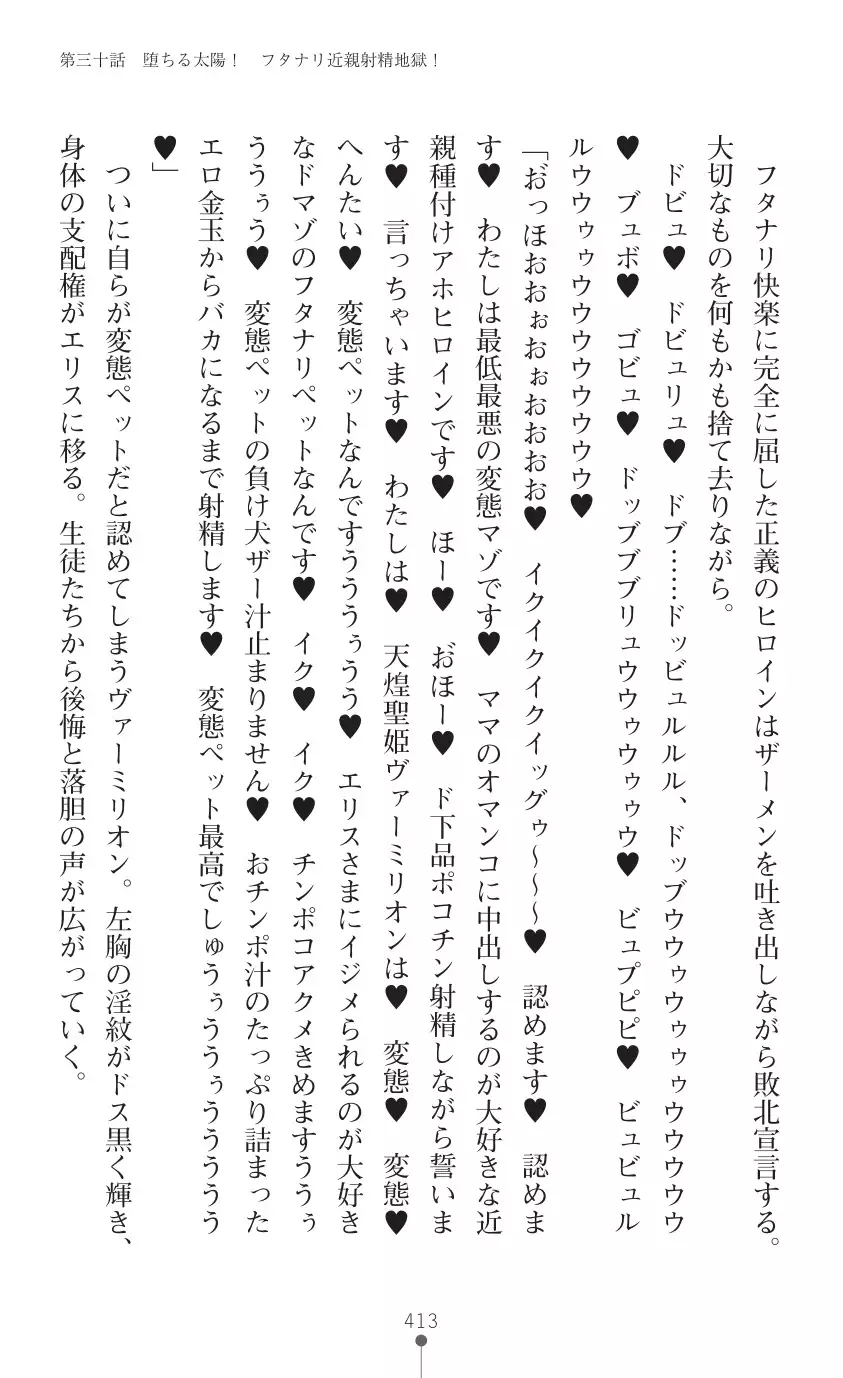 第三十話　堕ちる太陽！　フタナリ近親射精地獄！
フタナリ快楽に完全に屈した正義のヒロインはザーメンを吐き出しながら敗北宣言する。
大切なものを何もかも捨て去りながら。
ドビュ♥　ドビュリュ♥　ドブ……ドッビュルルル、ドッブウウゥウゥゥゥウウウウウ
♥　ブュボ♥　ゴビュ♥　ドッブブブリュウウゥウゥゥウ♥　ビュプピピ♥　ビュビュル
ルウウゥゥウウウウウウウウ♥
「お゛っほおおぉおぉおおおお♥　イクイクイクイッグゥ～～～♥　認めます♥　認めま
す♥　わたしは最低最悪の変態マゾです♥　ママのオマンコに中出しするのが大好きな近
親種付けアホヒロインです♥　ほー♥　お゛ほー♥　ド下品ポコチン射精しながら誓いま
す♥　言っちゃいます♥　わたしは♥　天煌聖姫ヴァーミリオンは♥　変態♥　変態♥
へんたい♥　変態ペットなんですうううぅうう♥　エリスさまにイジメられるのが大好き
なドマゾのフタナリペットなんです♥　イク♥　イク♥　チンポコアクメきめますううぅ
ううぅう♥　変態ペットの負け犬ザー汁止まりません♥　おチンポ汁のたっぷり詰まった
エロ金玉からバカになるまで射精します♥　変態ペット最高でしゅうぅううぅううううう
♥」
ついに自らが変態ペットだと認めてしまうヴァーミリオン。左胸の淫紋がドス黒く輝き、
身体の支配権がエリスに移る。生徒たちから後悔と落胆の声が広がっていく。
413